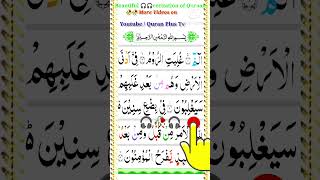 Beautiful 🎧🎧recitation of Quran
More Videos on
Youtube | Quran Plus Tv
بِسْمِ اللّٰهِ الرَّحْمٰنِ الرَّحِيْمِ
الٓمّٓ ۝ غُلِبَتِ الرُّوْمُ ۝ فِيْٓ اَدْنَى
الْاَرْضِ وَهُمْ مِّنْۢ بَعْدِ غَلَبِهِمْ
سَيَغْلِبُوْنَ ۝ فِيْ بِضْعِ سِنِيْنَ
الْاَمْرُ مِنْ قَبْلُ وَمِنْۢ بَعْدُ
يَّفْرَحُ الْمُؤْمِنُوْنَ ۝